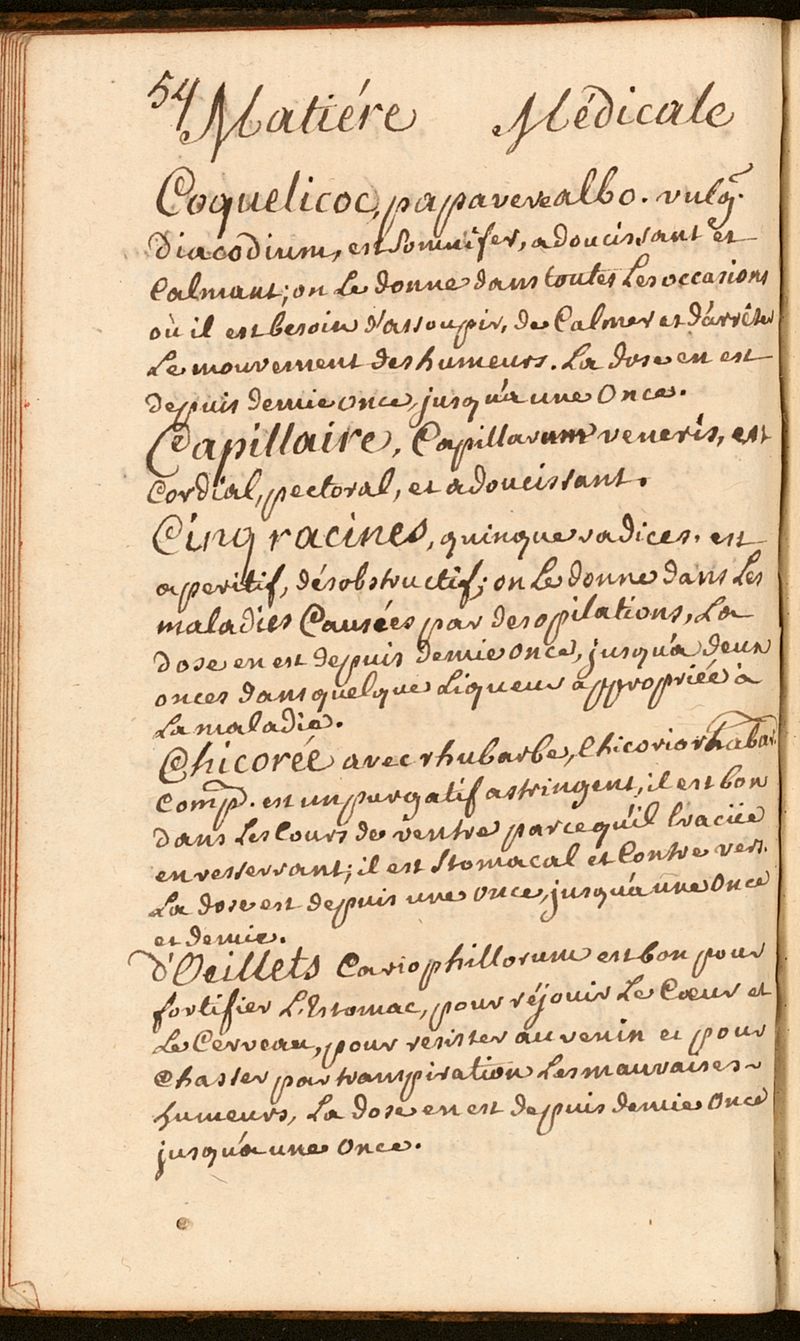 54
Matiére Médicale
Coquelicoc, papavere albo. vulg.
Diacodium, est somnifer, adoucissant et
Calmant; on Le donne dans toutes Les occasions
où il est besoin d'assoupir, de Calmer et d'arrêter
Le mouvement des humeurs. La dose en est
depuis demie once, jusqu'a une Once.
Capillaire, Capillarum veneris, est
Cordial, pectoral, et adoucissant.
Cinq racines, quinque radices. est
aperitif, désobstructif; on Le donne dans Les
maladies Causées par des opilations, La
dose en est depuis demie once, jusqu'a deux
onces dans quelque Liqueur appropriée à
La maladie.
Chicorée avec rhubarbe, Chicorio rhabar.
Comp. est un purgatif astringent, il est bon
dans Les Cours de ventre parcequ'il Evacüe
en resserrant; il est Stomacal et Contre vers.
La dose est depuis une once, jusqu'a une Once
et demie.
d'Oeillets Cariophillorum est bon pour
fortifier L'Estomac, pour réjouir Le Cœur et
Le Cerveau, pour resister au venin et pour
Chasser par transpiration Les mauvaises
humeurs, La dose en est depuis demie Once
jusqu'a une Once.